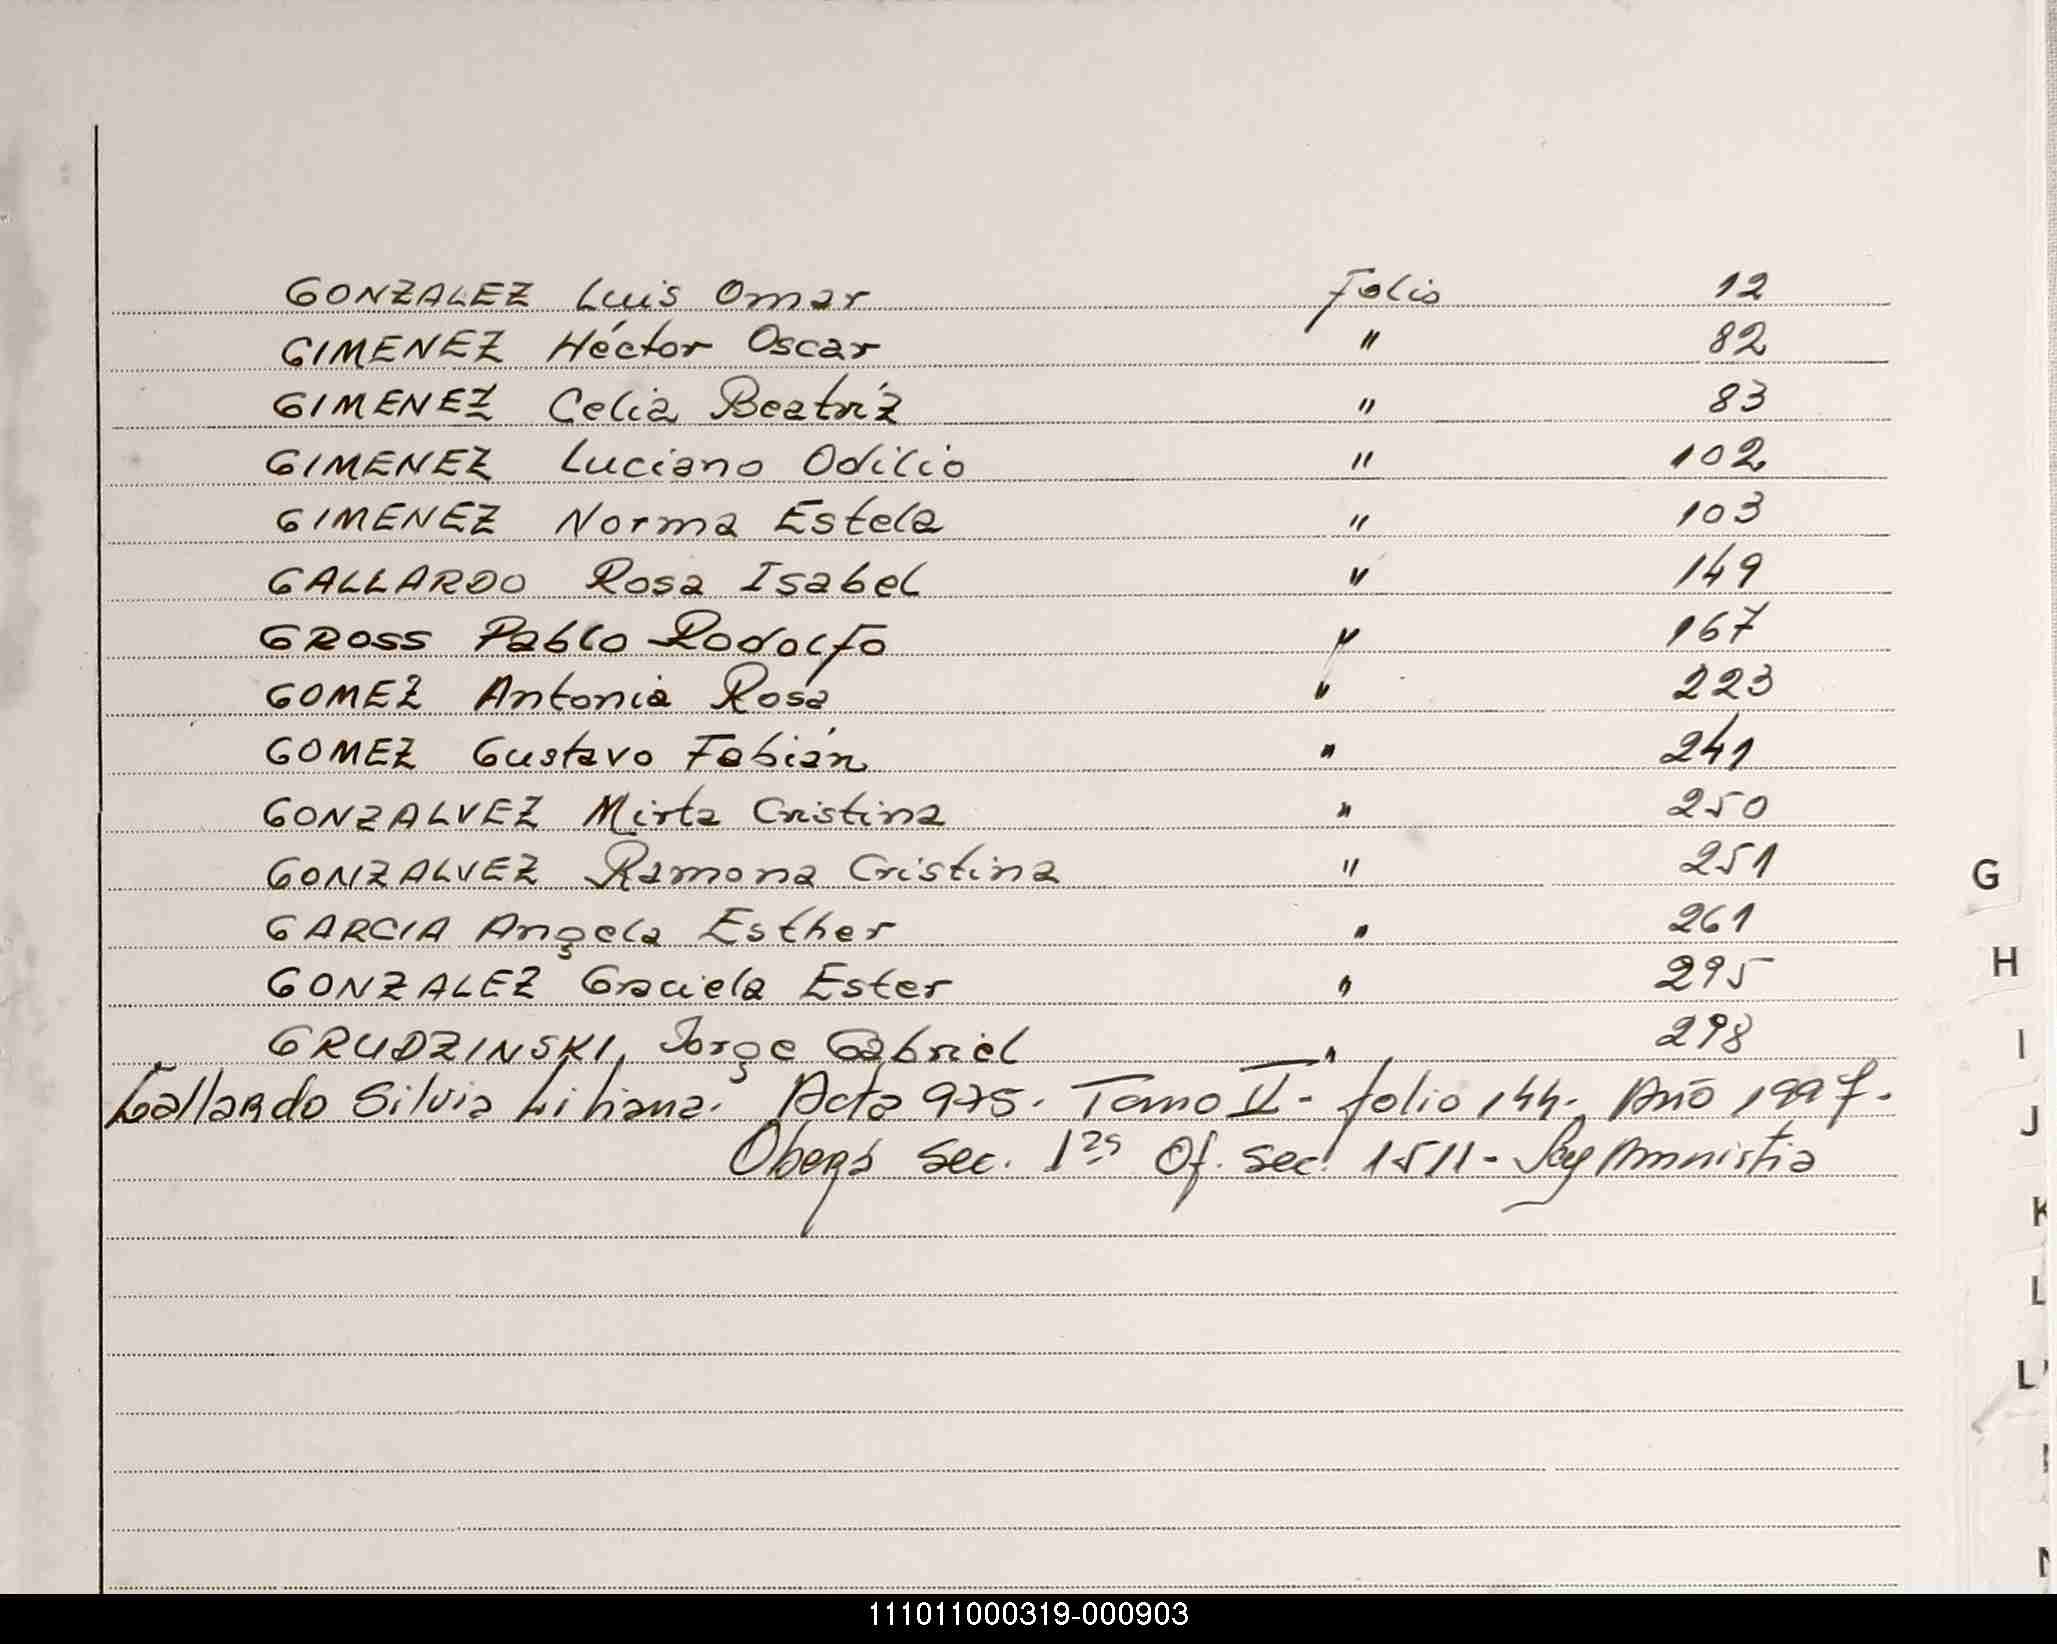 GONZALEZ Luis Omar Folio 12
GIMENEZ Héctor Oscar " 82
GIMENEZ Celia Beatríz " 83
GIMENEZ Luciano Odilio " 102
GIMENEZ Norma Estela " 103
GALLARDO Rosa Isabel " 149
GROSS Pablo Rodolfo " 167
GOMEZ Antonia Rosa " 223
GOMEZ Gustavo Fabián " 241
GONZALVEZ Mirta Cristina " 250
GONZALVEZ Ramona Cristina " 251
GARCIA Angela Esther " 261
GONZALEZ Graciela Ester " 295
GRUDZINSKI, Jorge Gabriel " 298
Gallardo Silvia Liliana. Acta 975. Tomo II - folio 144. Año 1997.
Oberá Sec. 1ra Of. Sec. 1511 - Ley Amnistia
G
H
I
J
K
L
L